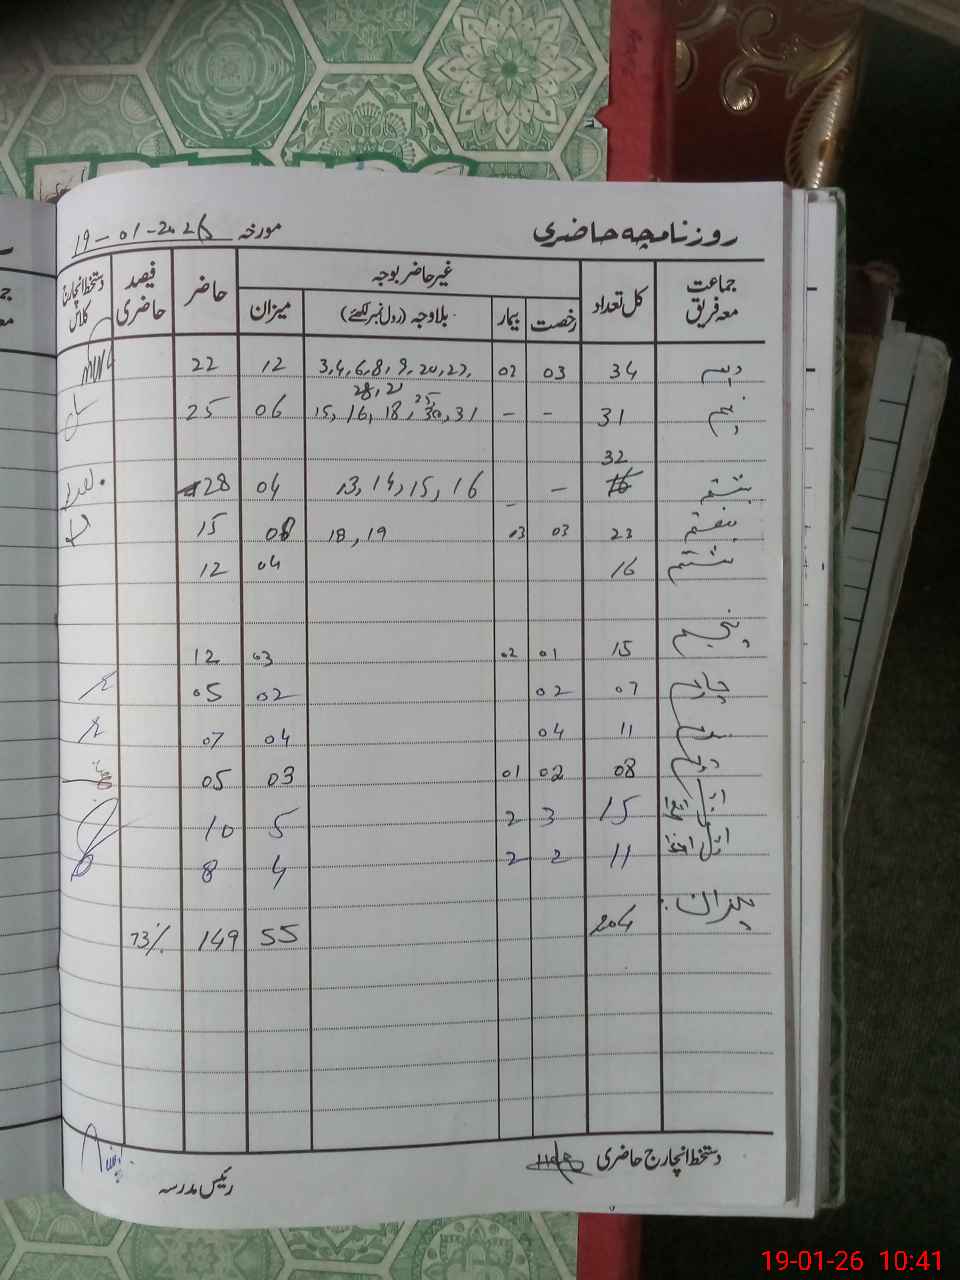 روزنامچہ حاضری مورخہ 19-01-2026
جماعت معہ فریق کل تعداد غیر حاضر بوجہ حاضر فیصد حاضری دستخط انچارج کلاس
رخصت بیمار بلاوجہ (رول نمبر لکھئے) میزان
دہم 34 03 02 3,4,6,8,9,20,27, 28,21 12 22
نہم 31 - - 15, 16, 18, 25, 30, 31 06 25
32
ہشتم 16 - - 13, 14, 15, 16 04 28
ہفتم 23 03 03 18, 19 08 15
ششم 16 04 12
پنجم 15 01 02 03 12
چہارم 07 02 02 05
سوم 11 04 04 07
دوم 08 02 01 03 05
اول 15 3 2 5 10
اول 11 2 2 4 8
میزان: 204 55 149 73%
دستخط انچارج حاضری
رئیس مدرسہ
19-01-26 10:41